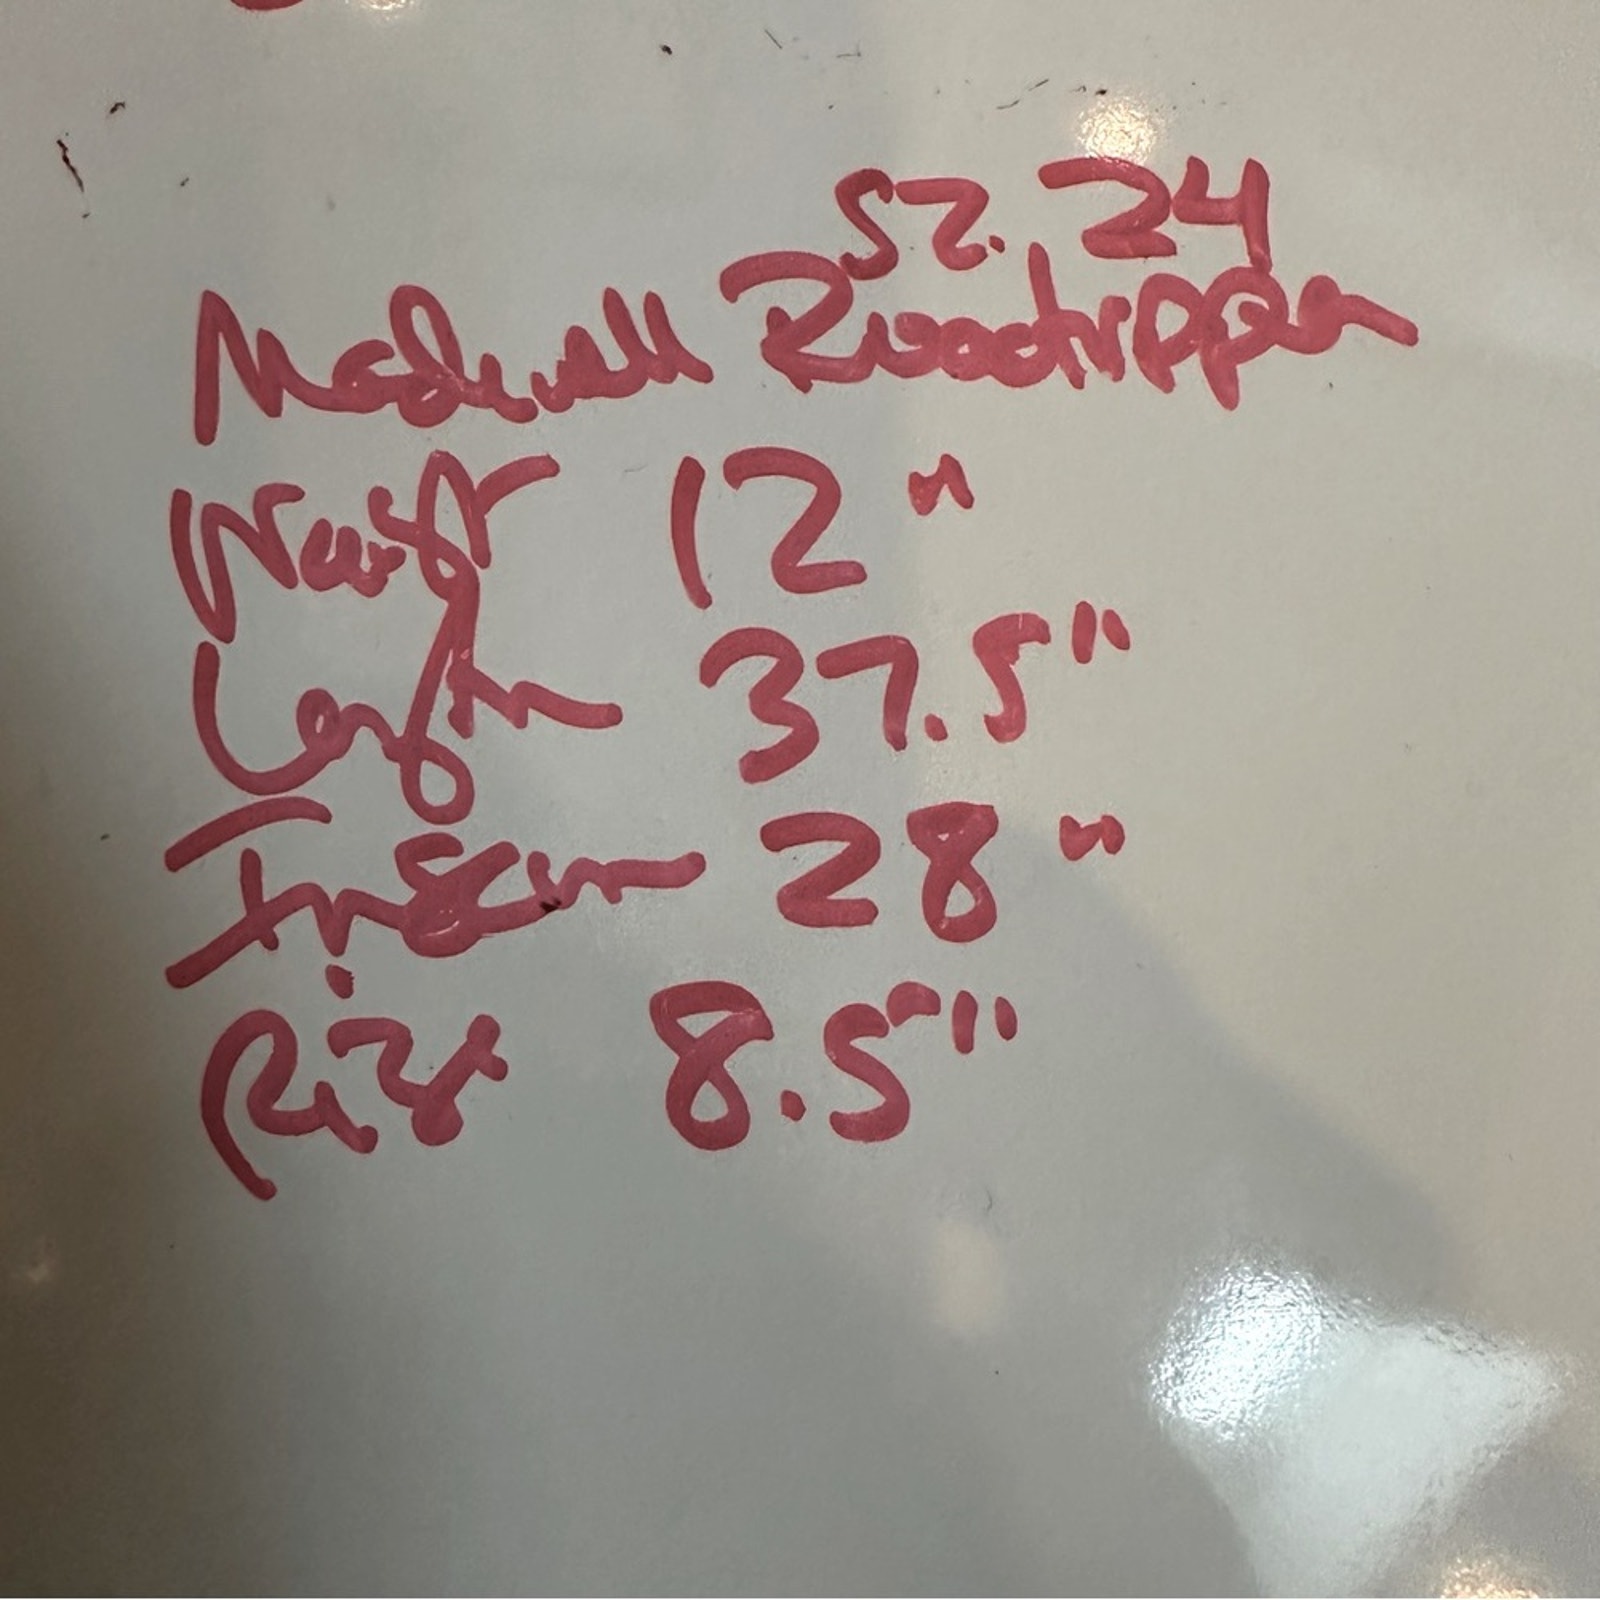 sz. 24
Madewell Roadtripper
Waist 12"
Length 37.5"
Inseam 28"
Rise 8.5"